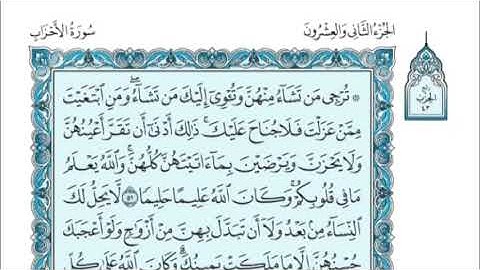 الجزء الثاني والعشرون
سورة الأحزاب
ربع
الحزب
٤٣
۞ تُرْجِي مَن تَشَآءُ مِنْهُنَّ وَتُـْٔوِيٓ إِلَيْكَ مَن تَشَآءُۖ وَمَنِ ٱبْتَغَيْتَ
مِمَّنْ عَزَلْتَ فَلَا جُنَاحَ عَلَيْكَۚ ذَٰلِكَ أَدْنَىٰٓ أَن تَقَرَّ أَعْيُنُهُنَّ
وَلَا يَحْزَنَّ وَيَرْضَيْنَ بِمَآ ءَاتَيْتَهُنَّ كُلُّهُنَّۚ وَٱللَّهُ يَعْلَمُ
مَا فِي قُلُوبِكُمْۚ وَكَانَ ٱللَّهُ عَلِيمًا حَلِيمًا ٥١ لَّا يَحِلُّ لَكَ
ٱلنِّسَآءُ مِنۢ بَعْدُ وَلَآ أَن تَبَدَّلَ بِهِنَّ مِنْ أَزْوَٰجٍ وَلَوْ أَعْجَبَكَ
حُسْنُهُنَّ إِلَّا مَا مَلَكَتْ يَمِينُكَۗ وَكَانَ ٱللَّهُ عَلَىٰ كُلِّ